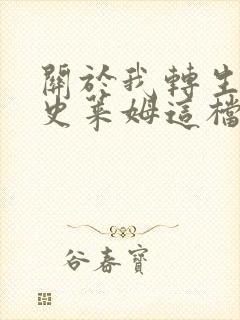 關於我轉生
史萊姆這檔
谷春寶